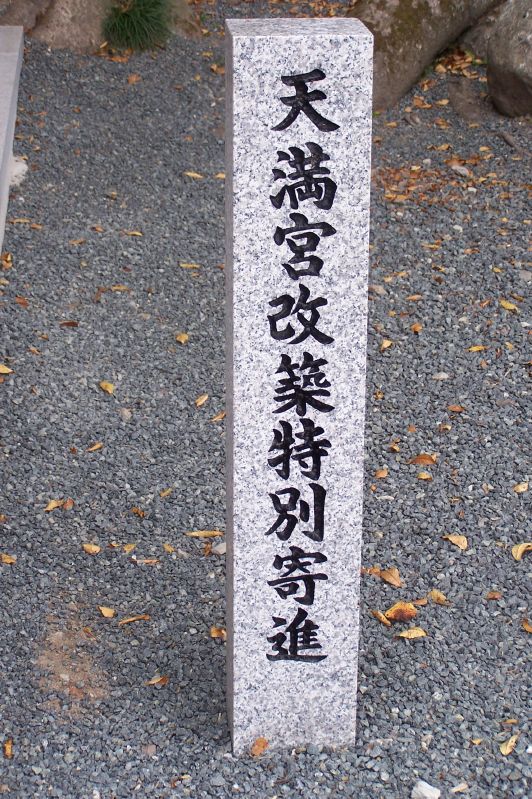 天満宮改築特別寄進